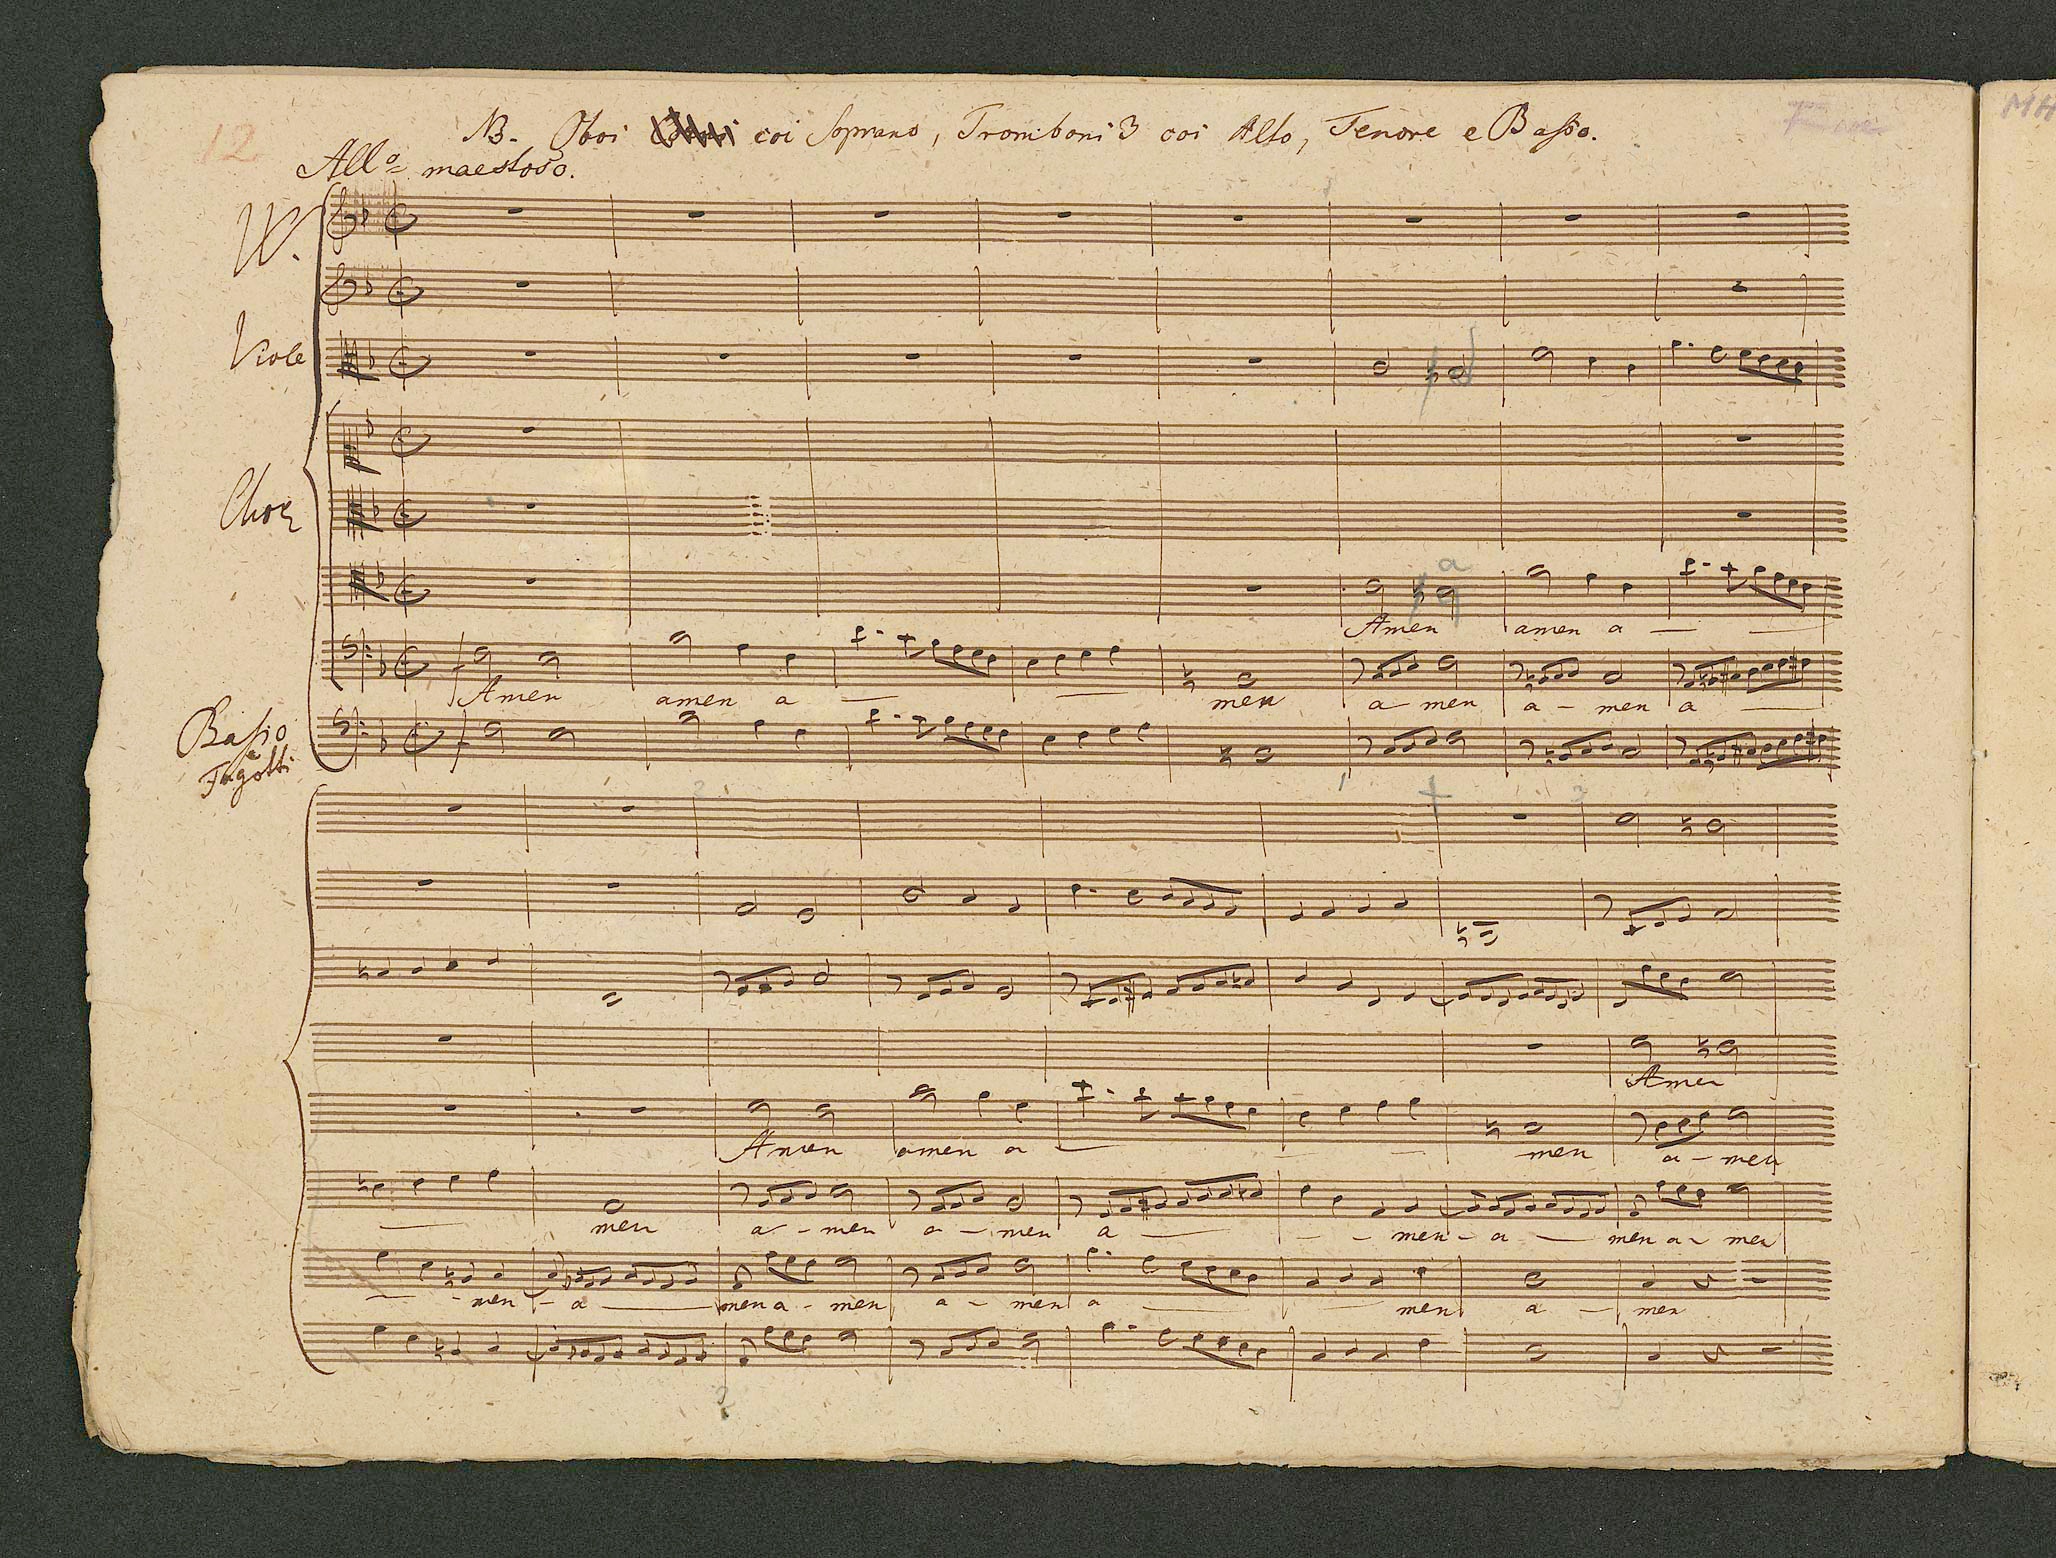 12
NB. Oboi coi Soprano, Tromboni 3 coi Alto, Tenore e Basso.
Allo maestoso.
VV.
Viole
Chor
a
Amen amen a
Amen amen a men a men a - men a
Basso
e
Fagotti
Amen
Amen amen a men a - men
men a - men a - men a men - a men a - men
men - a men a - men a - men a men a - men